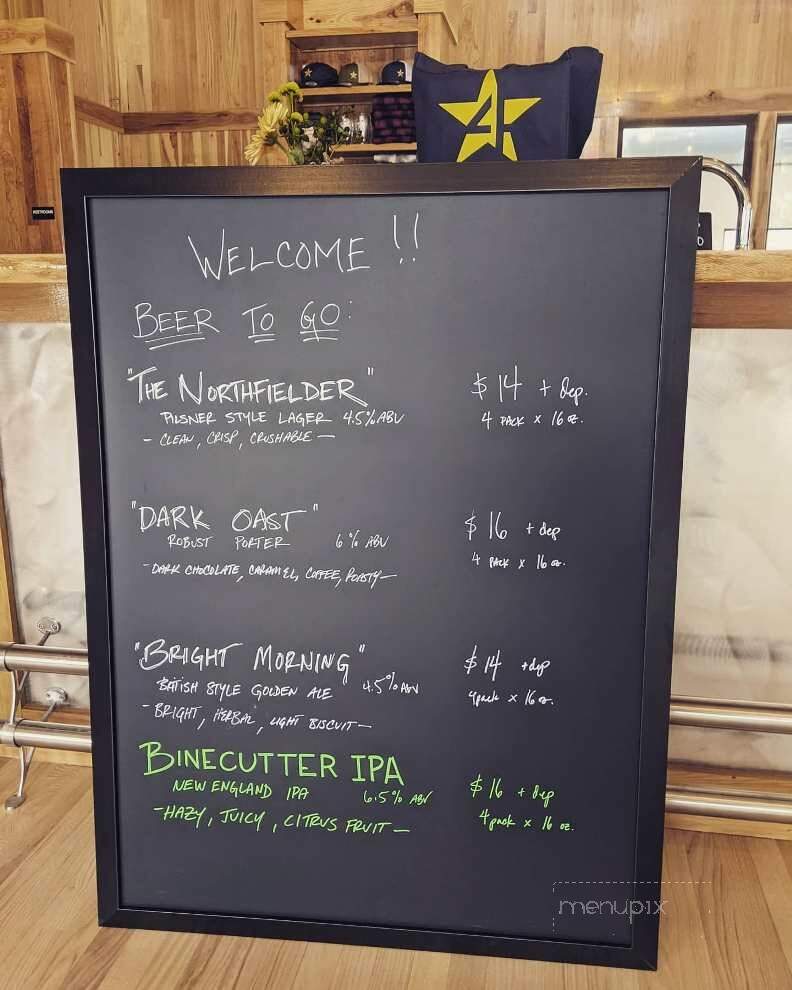 WELCOME !!
BEER TO GO:
"THE NORTHFIELDER" $14 + dep.
PILSNER STYLE LAGER 4.5% ABV 4 PACK x 16 oz.
- CLEAN, CRISP, CRUSHABLE -
"DARK OAST" $16 + dep
ROBUST PORTER 6% ABV 4 PACK x 16 oz.
- DARK CHOCOLATE, CARAMEL, COFFEE, ROASTY -
"BRIGHT MORNING" $14 + dep
BRITISH STYLE GOLDEN ALE 4.5% ABV 4 pack x 16 oz.
- BRIGHT, HERBAL, LIGHT BISCUIT -
BINECUTTER IPA $16 + dep
NEW ENGLAND IPA 6.5% ABV 4 pack x 16 oz.
- HAZY, JUICY, CITRUS FRUIT -
menupix
RESTROOMS